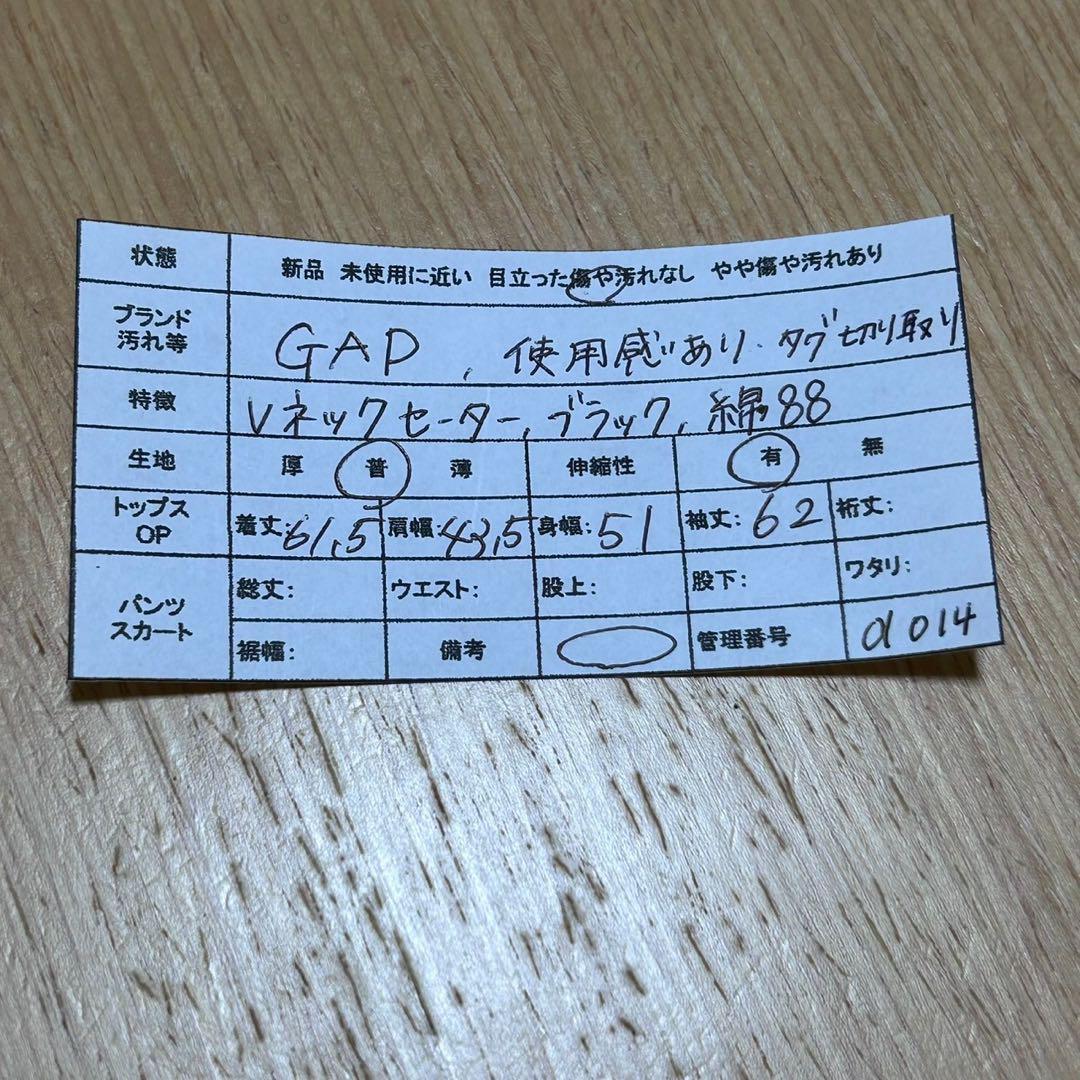 状態 新品 未使用に近い 目立った傷や汚れなし やや傷や汚れあり
ブランド
汚れ等 GAP, 使用感あり. タグ切り取り
特徴 Vネックセーター, ブラック, 綿88
生地 厚 普 薄 伸縮性 有 無
トップス
OP 着丈:61,5 肩幅:43,5 身幅:51 袖丈:62 裄丈:
パンツ
スカート 総丈: ウエスト: 股上: 股下: ワタリ:
裾幅: 備考 管理番号 d014